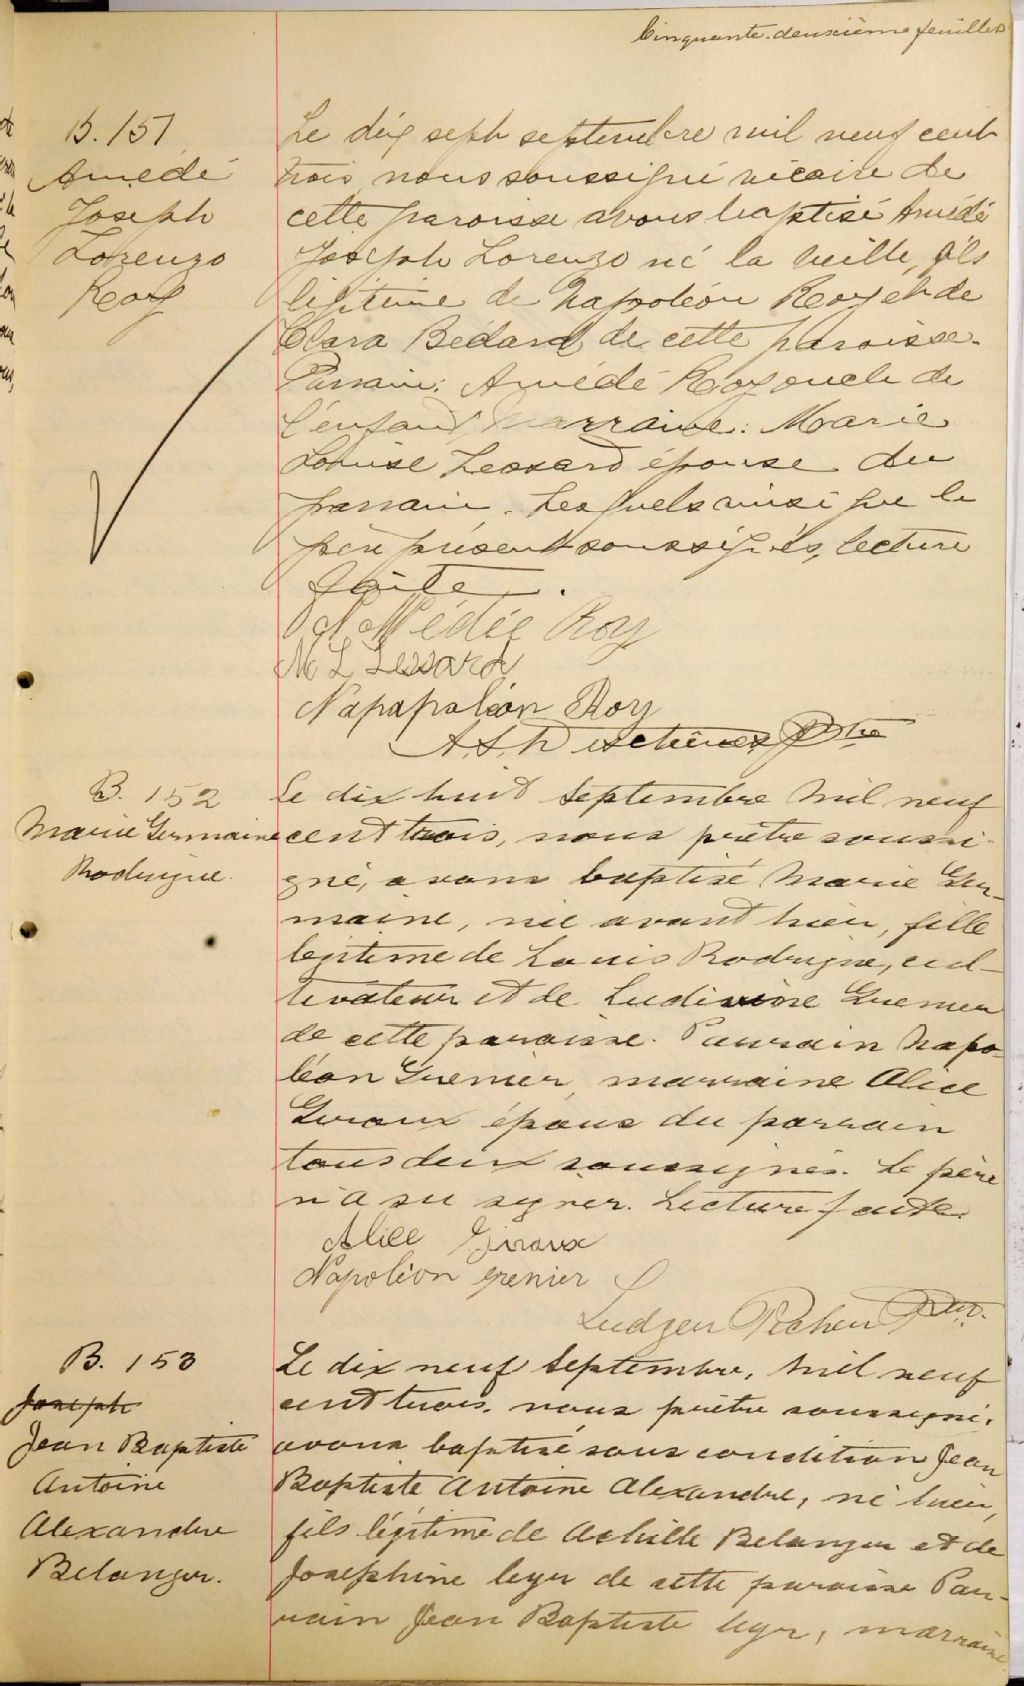 Cinquante-deuxième feuillet
B. 151
Amédé
Joseph
Lorenzo
Roy
Le dix sept septembre mil neuf cent
trois nous soussigné vicaire de
cette paroisse avons baptisé Amédé
Joseph Lorenzo né la veille, fils
légitime de Napoléon Roy et de
Clara Bédard de cette paroisse.
Parrain: Amédé Roy oncle de
l'enfant, Marraine: Marie
Louise Lessard épouse du
parrain. Lesquels ainsi que le
père présent soussignés, lecture
faite.
Médée Roy
M L Lessard
Napapoléon Roy
Ptre
B. 152
Marie Germaine
Rodrigue.
Le dix huit Septembre mil neuf
cent trois, nous prêtre soussi-
gné, avons baptisé Marie Ger-
maine, née avant hier, fille
legitime de Louis Rodrigue, cul-
tivateur et de Ludivine Grenier
de cette paroisse. Parrain Napo-
léon Grenier, marraine Alice
Giroux épouse du parrain
tous deux soussignés. Le père
n'a su signer. Lecture faite.
Alice Giroux
Napoléon Grenier
Ludger Ptre.
B. 153
Joseph
Jean Baptiste
Antoine
Alexandre
Belanger.
Le dix neuf Septembre, mil neuf
cent trois, nous prêtre soussigné,
avons baptisé sous condition Jean
Baptiste Antoine Alexandre, né hier,
fils légitime de Achille Belanger et de
Josephine leger de cette paroisse Par-
rain Jean Baptiste leger, marraine